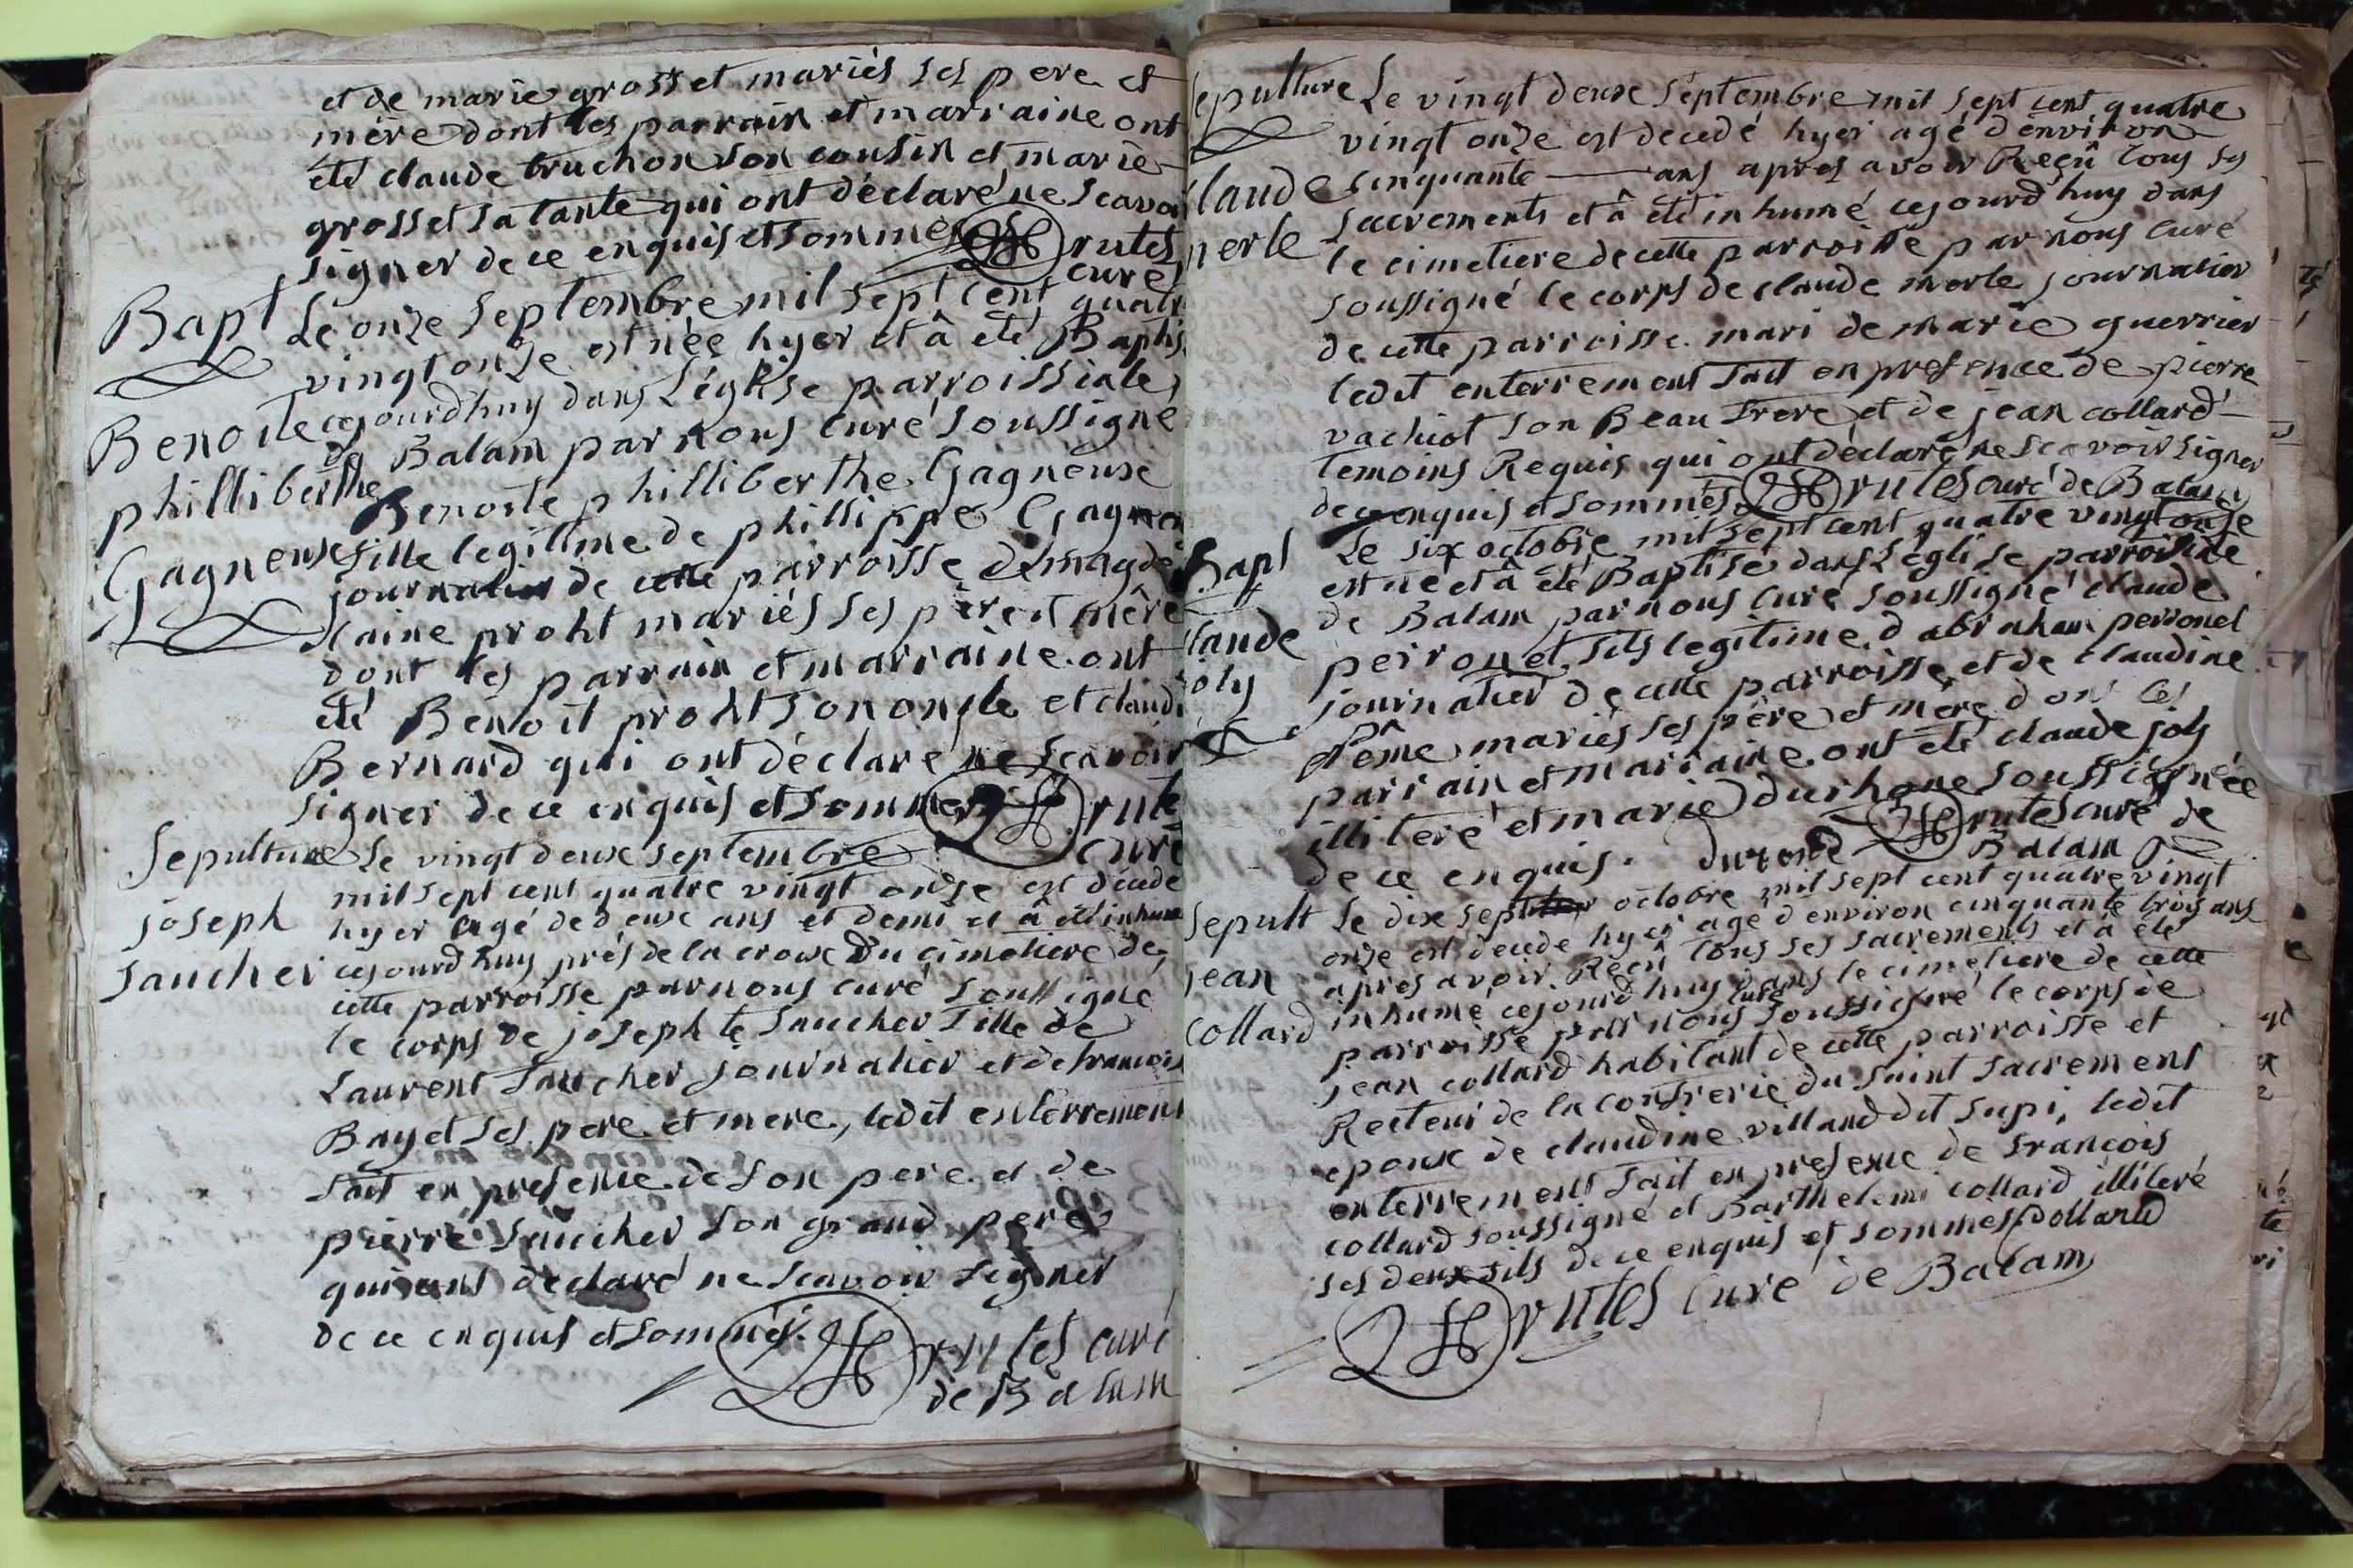 et de marie grosset mariés ses pere et
mère dont les parrain et marraine ont
été claude truchon son cousin et marie
grosset sa tante qui ont déclaré ne scavoi
signer de ce enquis et sommés rutes
curé
Bapt
Le onze septembre mil sept cent quatr
vingt onze est née hyer et â été Baptis
Benoite
cejourdhuy dans L'église parroissiale
de Balam par nous curé soussigné
philliberthe
Benoite philliberthe Gagneuse
Gagneuse
fille legitime de phillippe Gagne
journalier de cette parroisse et magde
laine proht mariés ses père et mère
dont les parrain et marraine ont
été Benoit proht son oncle et claudi
Bernard qui ont déclaré ne scavoir
signer de ce enquis et sommés rute
curé
Sepulture
Le vingt deux septembre
mil sept cent quatre vingt onze est décédé
joseph
hyer agé de deux ans et demi et â été inhumé
faucher
cejourdhuy près de la croix Du cimetiere de
cette parroisse par nous curé soussigné
le corps de joseph te faucher fille de
Laurent faucher journalier et de francois
Bayet ses pere et mere, ledit enterrement
fait en presence de son pere et de
pierre faucher son grand pere
qui ont déclaré ne scavoir signer
de ce enquis et sommés rutes curé
de Balam
epulture
Le vingt deux septembre mil sept cent quatre
vingt onze est decedé hyer agé d'environ
laude
cinquante ans apres avoir Reçû tous ses
sacrements et â été inhumé cejourdhuy dans
merle
le cimetiere de cette parroisse par nous curé
soussigné le corps de claude merle journalier
de cette parroisse mari de marie guerrier
ledit enterrement fait en presence de pierre
vachiot son Beau frere et de jean collard
temoins Requis qui ont déclaré ne scavoir signer
de ce enquis et sommés rutes curé de Balam
Bapt
Le six octobre mil sept cent quatre vingt onze
est né et â été Baptisé dans L'église parroissiale
de Balam par nous curé soussigné claude
laude
perronet fils legitime d'abraham perronet
joly
journalier de cette parroisse et de claudine
mariés ses père et mère dont les
parrain et marraine ont été claude joly
illiteré et marie Durhone soussignée
de ce enquis. rutes curé de
Balam
Sepult
Le dix sept octobre mil sept cent quatre vingt
onze est decedé hyer agé d'environ cinquante trois ans
jean
apres avoir Reçû tous ses sacrements et â été
inhumé cejourdhuy dans le cimetiere de cette
collard
parroisse par nous curé soussigné le corps de
jean collard habitant de cette parroisse et
Recteur de la confrerie du saint sacrement
epoux de claudine villand dit supi, ledit
enterrement fait en presence de francois
collard soussigné et Barthelemi collard illiteré
ses deux fils de ce enquis et sommés Collard
rutes curé de Balam